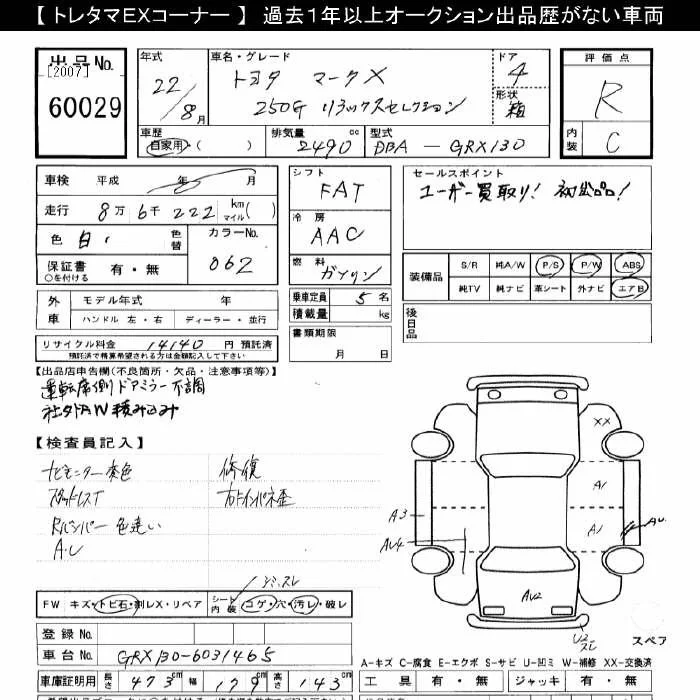 【 トレタマEXコーナー 】 過去1年以上オークション出品歴がない車両
出品No.
[2007]
60029
年式
22/8月
車名・グレード
トヨタ マークX
250G リラックスセレクション
ドア
4
形状
箱
評価点
R
内装
C
車歴
自家用・( )
排気量
2490 cc
型式
DBA - GRX130
車検 平成 年 月
走行 8万 6千 222 km マイル( )
色 白 色替
カラーNo.
062
保証書 有・無
○を付ける
シフト
FAT
冷房
AAC
燃料
ガソリン
乗車定員 5 名
積載量 kg
書類期限
月 日
セールスポイント
ユーザー買取り! 初出品!
装備品
S/R 純A/W P/S P/W ABS
純TV 純ナビ 革シート 外ナビ エアB
後日品
外車
モデル年式 年
ハンドル 左・右 ディーラー・並行
リサイクル料金 14140 円 預託済
預託済で精算希望される方は金額記入して下さい
【出品店申告欄(不良箇所・欠品・注意事項等)】
運転席側ドアミラー不調
社外AW積み込み
【検査員記入】
ナビモニター変色
修復
右ドインパネ歪
Rバンパー色違い
A・U
シミ、スレ
FW キズ・トビ石・割レX・リペア
シート内装 コゲ・穴・汚レ・破レ
登録No.
車台No. GRX130-6031465
車庫証明用 長さ 473 cm 幅 179 cm 高さ 143 cm
XX
A1
A3
A1
AU4
AU2
U2
スレ
スペア
A-キズ C-腐食 E-エクボ S-サビ U-凹ミ W-補修 XX-交換済
工具 有・無 ジャッキ 有・無